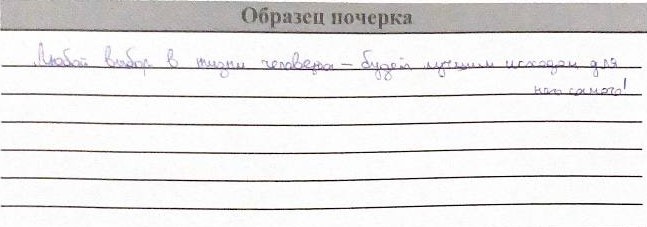 Образец почерка
Любой выбор в жизни человека – будет лучшим исходом для
него самого!